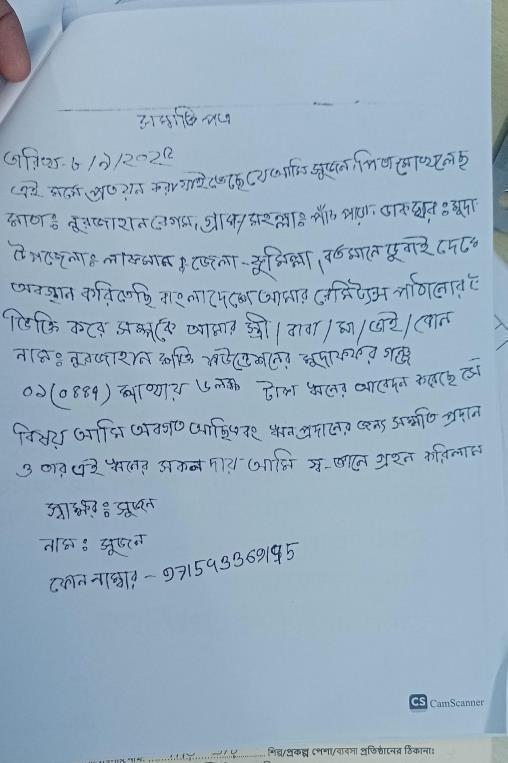 সম্মতি পত্র
তারিখ- ৮/৯/২০২৫
এই মর্মে প্রত্যয়ন করা যাইতেছে যে আমি সুজন, পিতা
মাতাঃ নুরজাহান বেগম, গ্রাম/মহল্লাঃ পাঁচ পাড়া, ডাকঘরঃ মুদা
উপজেলাঃ লাকসাম ঃ জেলা - কুমিল্লা, বর্তমানে দুবাই দেশে
অবস্থান করিতেছি বাংলাদেশে আমার রেমিট্যান্স পাঠানোর উ
ভিত্তি করে সম্পর্কে আমার স্ত্রী / বাবা / মা / ভাই / বোন
নামঃ নুরজাহান শক্তি ফাউন্ডেশনের মুদাফফর গঞ্জ
০১(০৪৪৭) শাখায় ৬ লক্ষ টাকা ঋনের আবেদন করেছে সে
বিষয় আমি অবগত আছি এবং ঋন প্রদানের জন্য সম্মতি প্রদান
ও তার এই ঋনের সকল দায় আমি স্ব-জ্ঞানে গ্রহন করিলাম
স্বাক্ষরঃ সুজন
নামঃ সুজন
ফোন নাম্বার -
CS CamScanner
শিল্প/প্রকল্প পেশা/ব্যবসা প্রতিষ্ঠানের ঠিকানাঃ